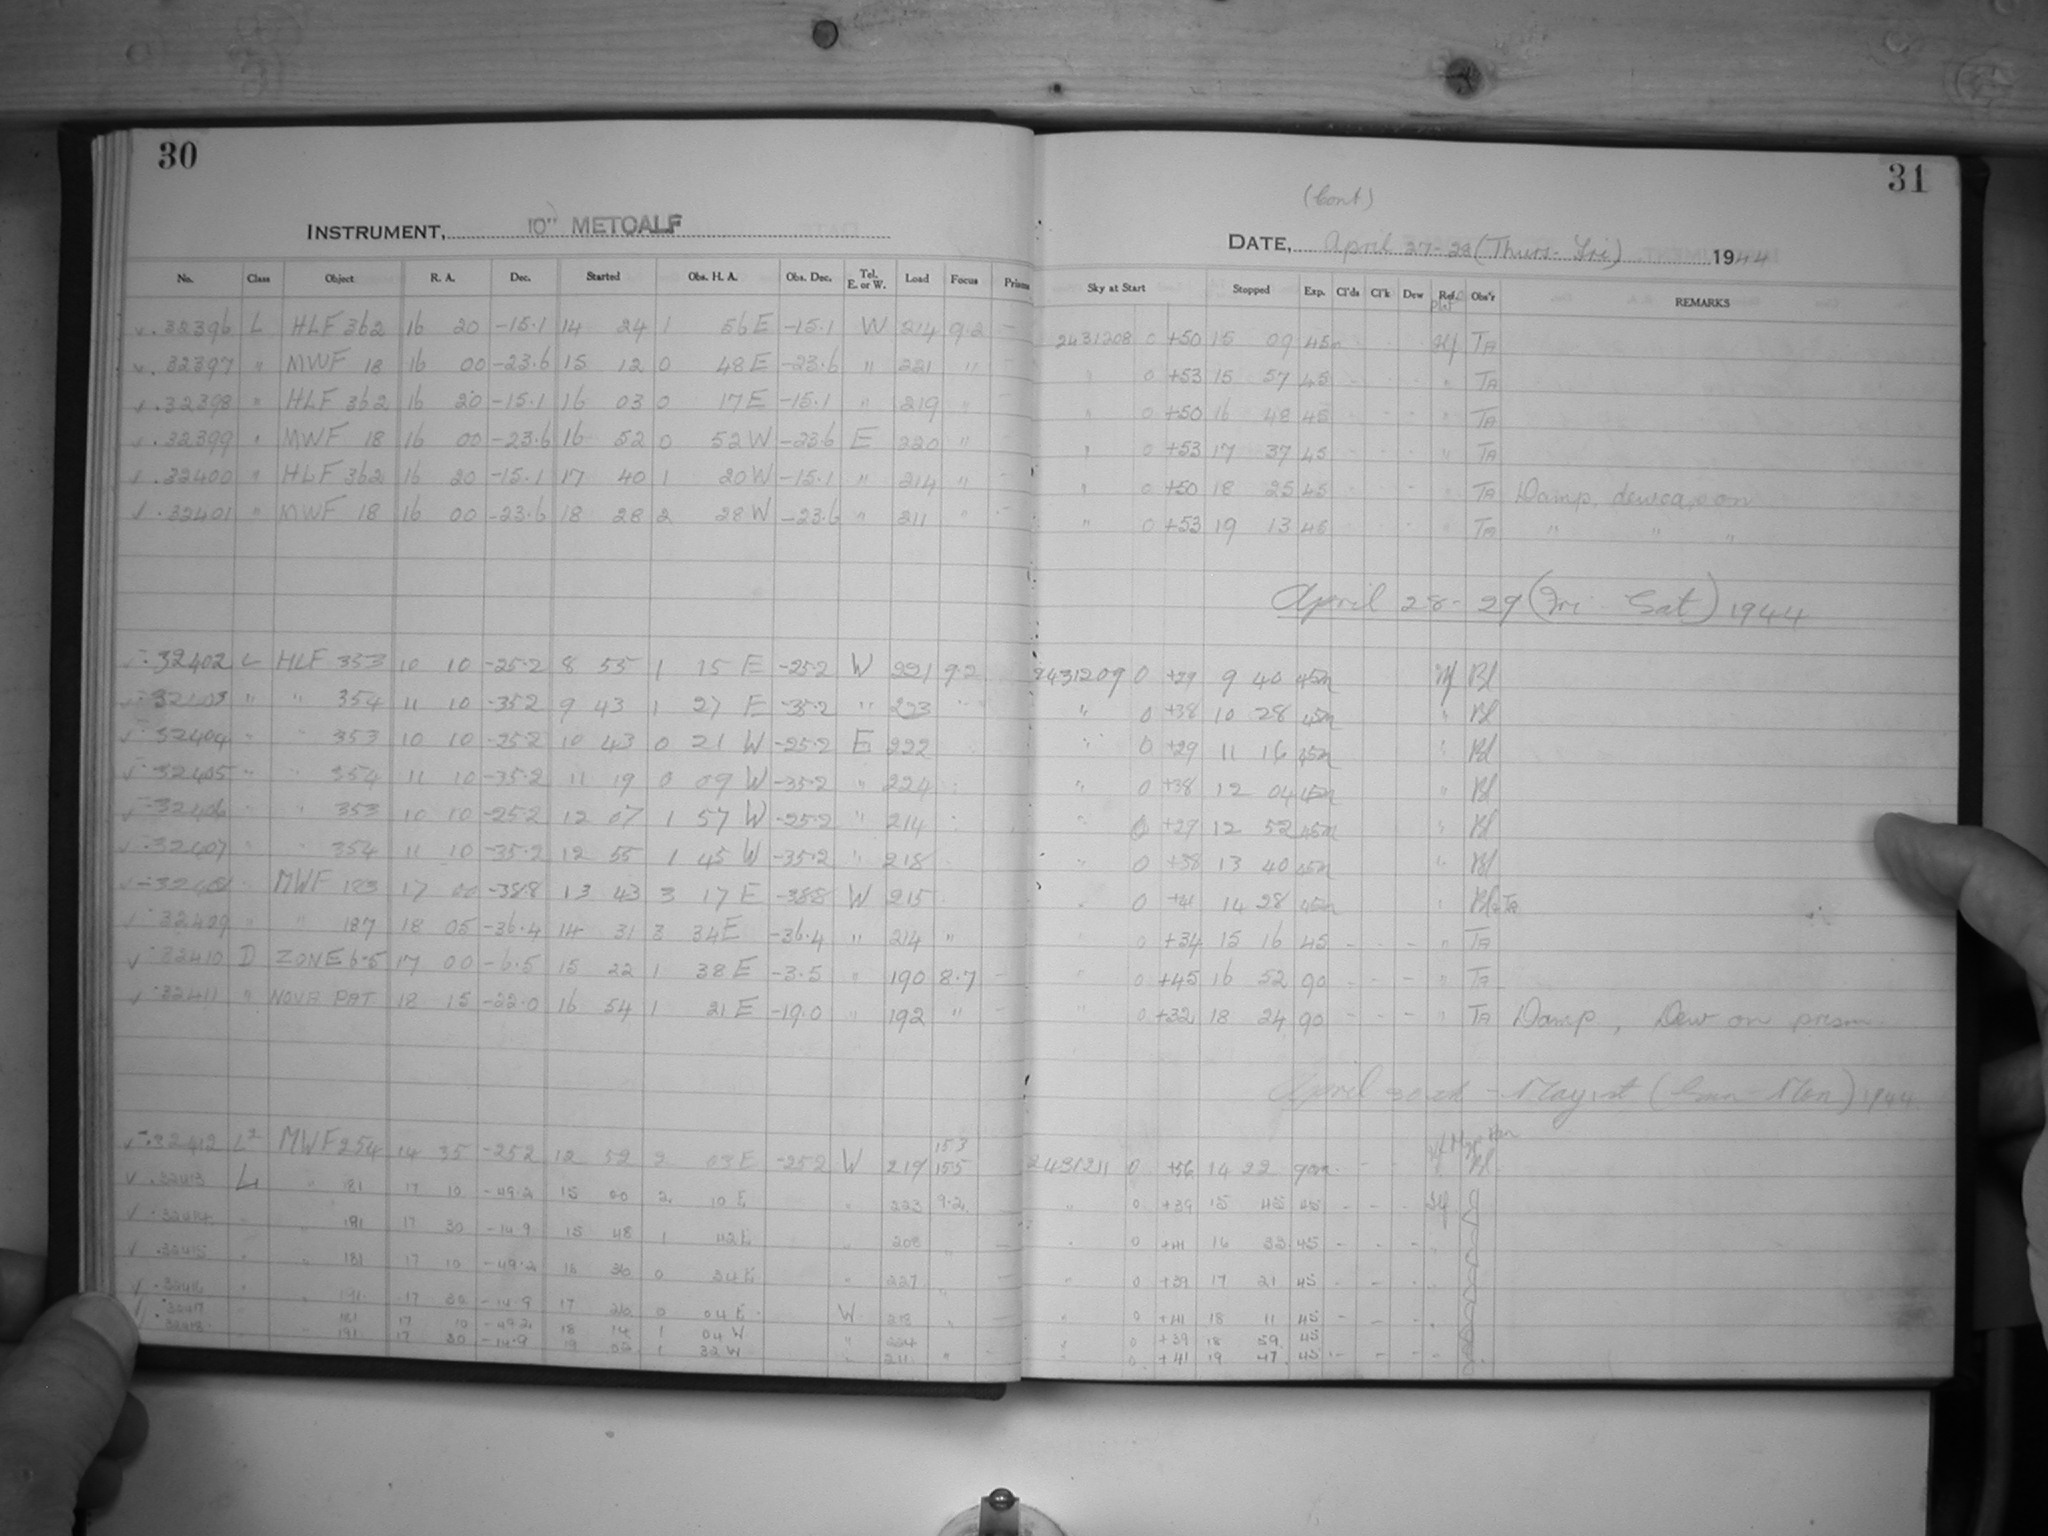 30
INSTRUMENT, 10" METCALF
No. Class Object R. A. Dec. Started Obs. H. A. Obs. Dec. Tel. E. or W. Load Focus Prism
32396 L HLF 362 16 20 -15.1 14 24 1 56 E -15.1 W 214 9.2 -
32397 " MWF 18 16 00 -23.6 15 12 0 48 E -23.6 " 221 " -
32398 " HLF 362 16 20 -15.1 16 03 0 17 E -15.1 " 219 " -
32399 " MWF 18 16 00 -23.6 16 52 0 52 W -23.6 E 220 " -
32400 " HLF 362 16 20 -15.1 17 40 1 20 W -15.1 " 214 " -
32401 " MWF 18 16 00 -23.6 18 28 2 28 W -23.6 " 211 " -
32402 L HLF 353 10 10 -25.2 8 55 1 15 E -25.2 W 221 9.2
32403 " " 354 11 10 -35.2 9 43 1 27 E -35.2 " 223 "
32404 " " 353 10 10 -25.2 10 43 0 21 W -25.2 E 222
32405 " " 354 11 10 -35.2 11 19 0 09 W -35.2 " 224
32406 " " 353 10 10 -25.2 12 07 1 57 W -25.2 " 214
32407 " " 354 11 10 -35.2 12 55 1 45 W -35.2 " 218
MWF 183 17 00 -38.8 13 43 3 17 E -38.8 W 215
32409 " " 187 18 05 -36.4 14 31 3 34 E -36.4 " 214 "
32410 D ZONE 6-5 17 00 -6.5 15 22 1 38 E -3.5 " 190 8.7 -
32411 " NOVA PAT 18 15 -22.0 16 54 1 21 E -19.0 " 192 " -
32412 L² MWF 254 14 35 -25.2 12 52 2 03 E -25.2 W 219 153 155
32413 L " 181 17 10 -49.2 15 00 2 10 E " 223 9.2
32414 " " 191 17 30 -14.9 15 48 1 42 E " 208 " -
32415 " " 181 17 10 -49.2 16 36 0 34 E " 227 " -
32416 " " 191 17 30 -14.9 17 26 0 04 E W 218 " -
32417 181 17 10 -49.2 18 14 1 04 W " 224
32418 191 17 30 -14.9 19 02 1 32 W " 211 " -
31
(Cont)
DATE, April 27-28 (Thurs-Fri) 1944
Sky at Start Stopped Exp. Cl'ds Cl'k Dew Ref. Obs'r REMARKS
2431208 0 +50 15 09 45 Hf TA
" 0 +53 15 57 45 - - - " TA
" 0 +50 16 48 45 - - - " TA
" 0 +53 17 37 45 - - - " TA
" 0 +50 18 25 45 - - - " TA Damp, dewcap on
" 0 +53 19 13 45 - - - " TA " " "
April 28-29 (Fri - Sat) 1944
2431209 0 +29 9 40 45m Hf Bl
" 0 +38 10 28 45m " Bl
" 0 +29 11 16 45m " Bl
" 0 +38 12 04 45m " Bl
" 0 +29 12 52 45m " Bl
" 0 +38 13 40 45m " Bl
" 0 +41 14 28 45m " Bl-TA
" 0 +34 15 16 45 - - - " TA
" 0 +45 16 52 90 - - - " TA
" 0 +32 18 24 90 - - - " TA Damp, Dew on prism
April 30th - May 1st (Sun-Mon) 1944
2431211 0 +56 14 22 90m - - Hf Bl
" 0 +39 15 45 45 - - - Hf J
" 0 +41 16 33 45 - - - "
" 0 +39 17 21 45 - - - "
" 0 +41 18 11 45 - - - "
" 0 +39 18 59 45
" 0 +41 19 47 45 - - - "